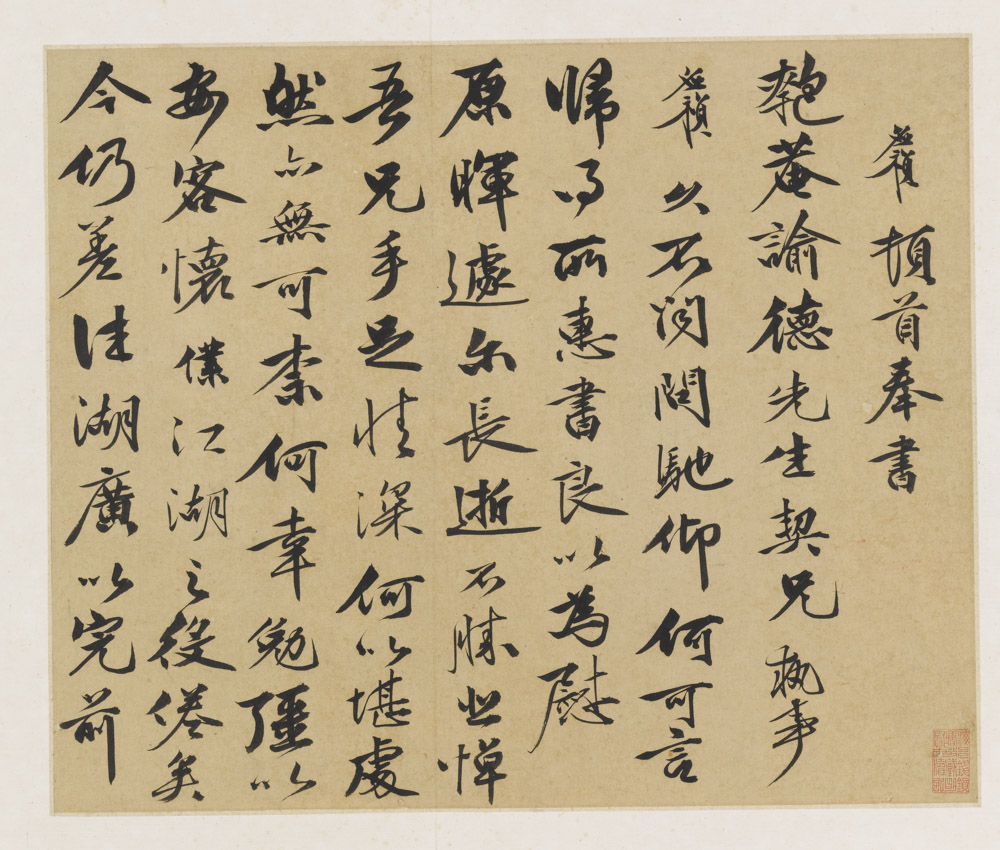 應禎頓首奉書
匏菴諭德先生契兄執事
應禎久不聞問馳仰何可言
歸得所惠書良以為慰
原暉遽尔長逝不勝悲憚
吾兄手足情深何以堪處
然亦無可柰何幸勉彊以
安客懷僕江湖之役倦矣
今仍差往湖廣以完前